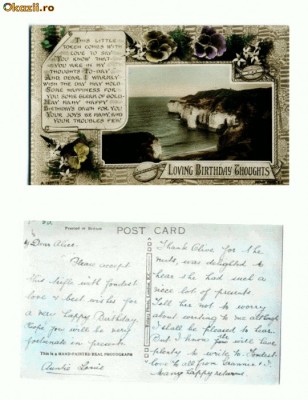 Okazii.ro
THIS LITTLE
TOKEN COMES WITH
LOVE TO SAY
YOU KNOW THAT
YOU ARE IN MY
THOUGHTS TO-DAY
AND DEAR, I WARMLY
WISH THE DAY MAY HOLD
SOME HAPPINESS FOR
YOU SOME GLEAM OF GOLD
MAY MANY HAPPY
BIRTHDAYS DAWN FOR YOU
YOUR JOYS BE MANY, AND
YOUR TROUBLES FEW.
LOVING BIRTHDAY THOUGHTS
POST CARD
Printed in Britain
My Dear Alice.
Please accept
this trifle with fondest
love & best wishes for
a very happy Birthday.
Hope you will be very
fortunate in presents
THIS IS A HAND-PAINTED REAL PHOTOGRAPH
Auntie
Thank Olive for the
nuts, was delighted to
hear she had such a
nice lot of presents.
Tell her not to worry
about writing to me although
I shall be pleased to hear.
But I know you will have
plenty to write to. Fondest
love to all from Grannie &
Many happy returns